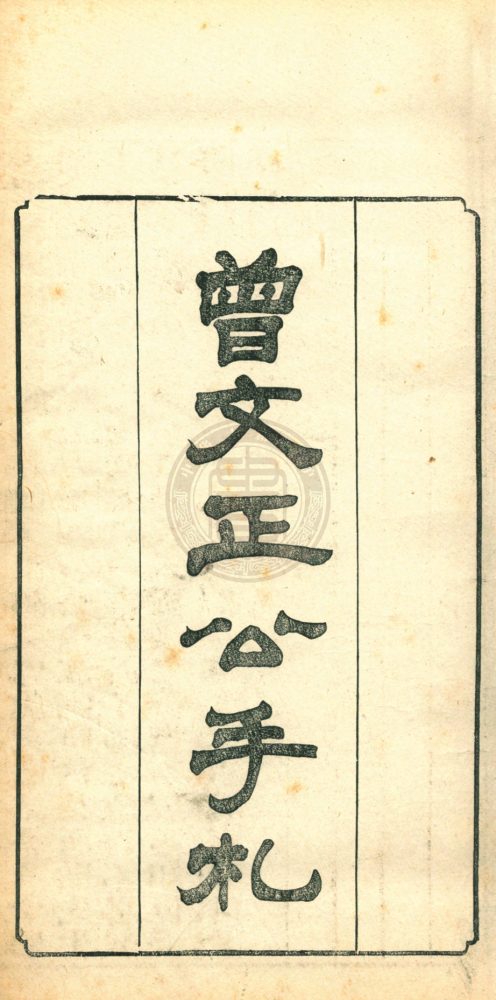 曾文正公手札